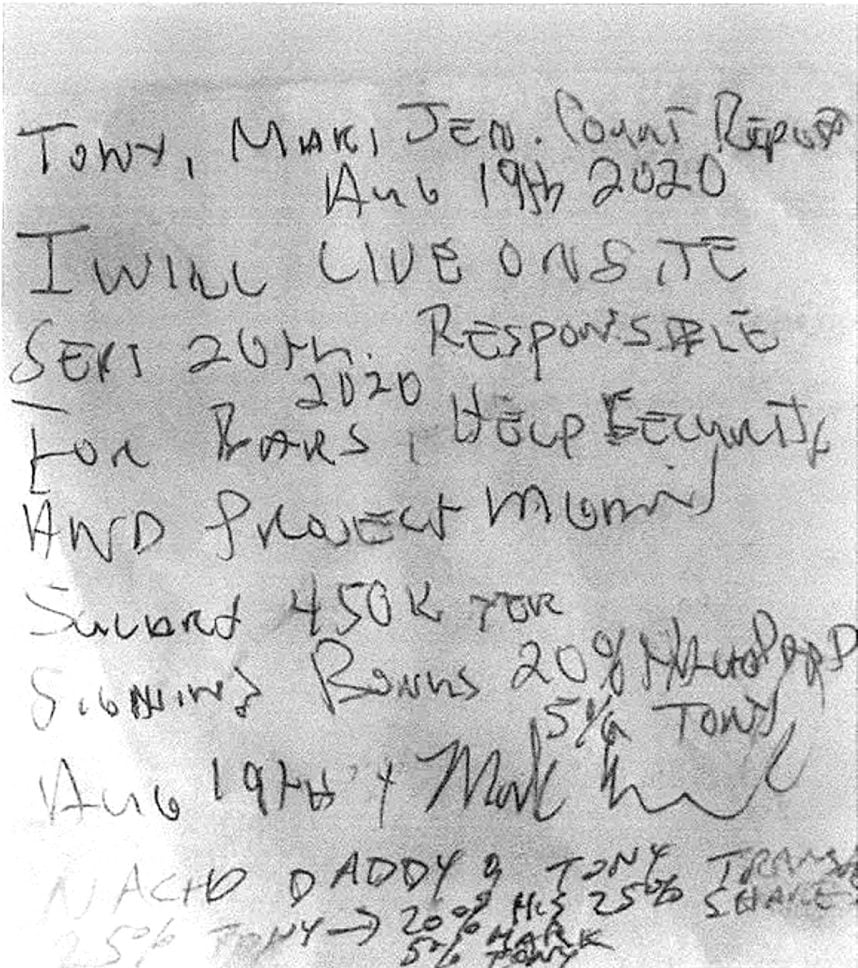 TONY, MARK, JEN. Count Report
Aug 19th 2020
I WILL LIVE ONSITE
SEPT 20th. RESPONSIBLE
2020
FOR BARS, HELP SECURITY
AND PROJECT MGMNT
450K
SIGNING BONUS 20%
5% TONY
Aug 19th Mark
NACHO DADDY TONY
25% TONY → 20% HIS 25% SHARES
5% MARK
TONY